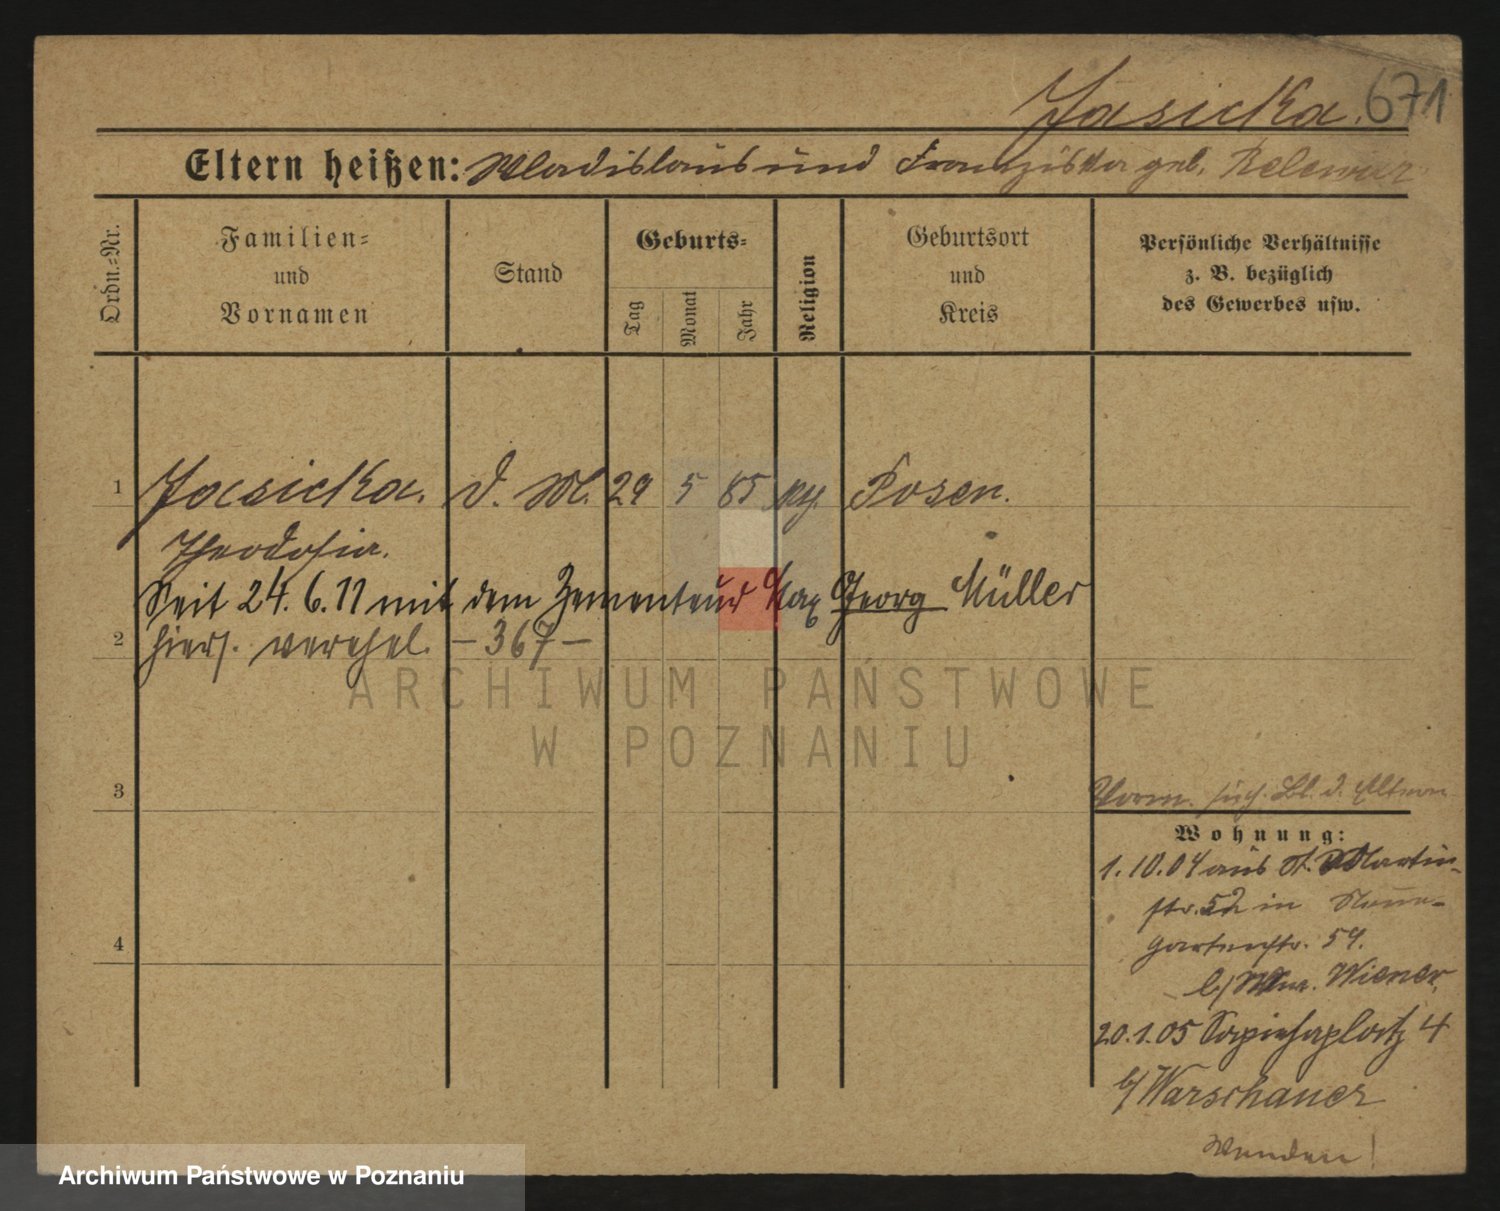 Jasicka. 671
Eltern heißen: Wladislaus und Franziska geb.
Ordn.=Nr.
Familien=
und
Vornamen
Stand
Geburts=
Tag
Monat
Jahr
Religion
Geburtsort
und
Kreis
Persönliche Verhältnisse
z. B. bezüglich
des Gewerbes usw.
1 Jasicka. d. M. 29 5 85 Posen.
Theodosia.
Seit 24.6.11 mit dem Zementeur Max Georg Müller
2 hiers. verehel. – 367 –
ARCHIWUM PAŃSTWOWE
W POZNANIU
3
Vorm. d. Eltern
Wohnung:
1.10.04 aus St. Martin-
str. 52 in
Gartenstr. 59.
b/ Wiener.
4
20.1.05 Sapiehaplatz 4
b/ Warschauer
Wenden!
Archiwum Państwowe w Poznaniu